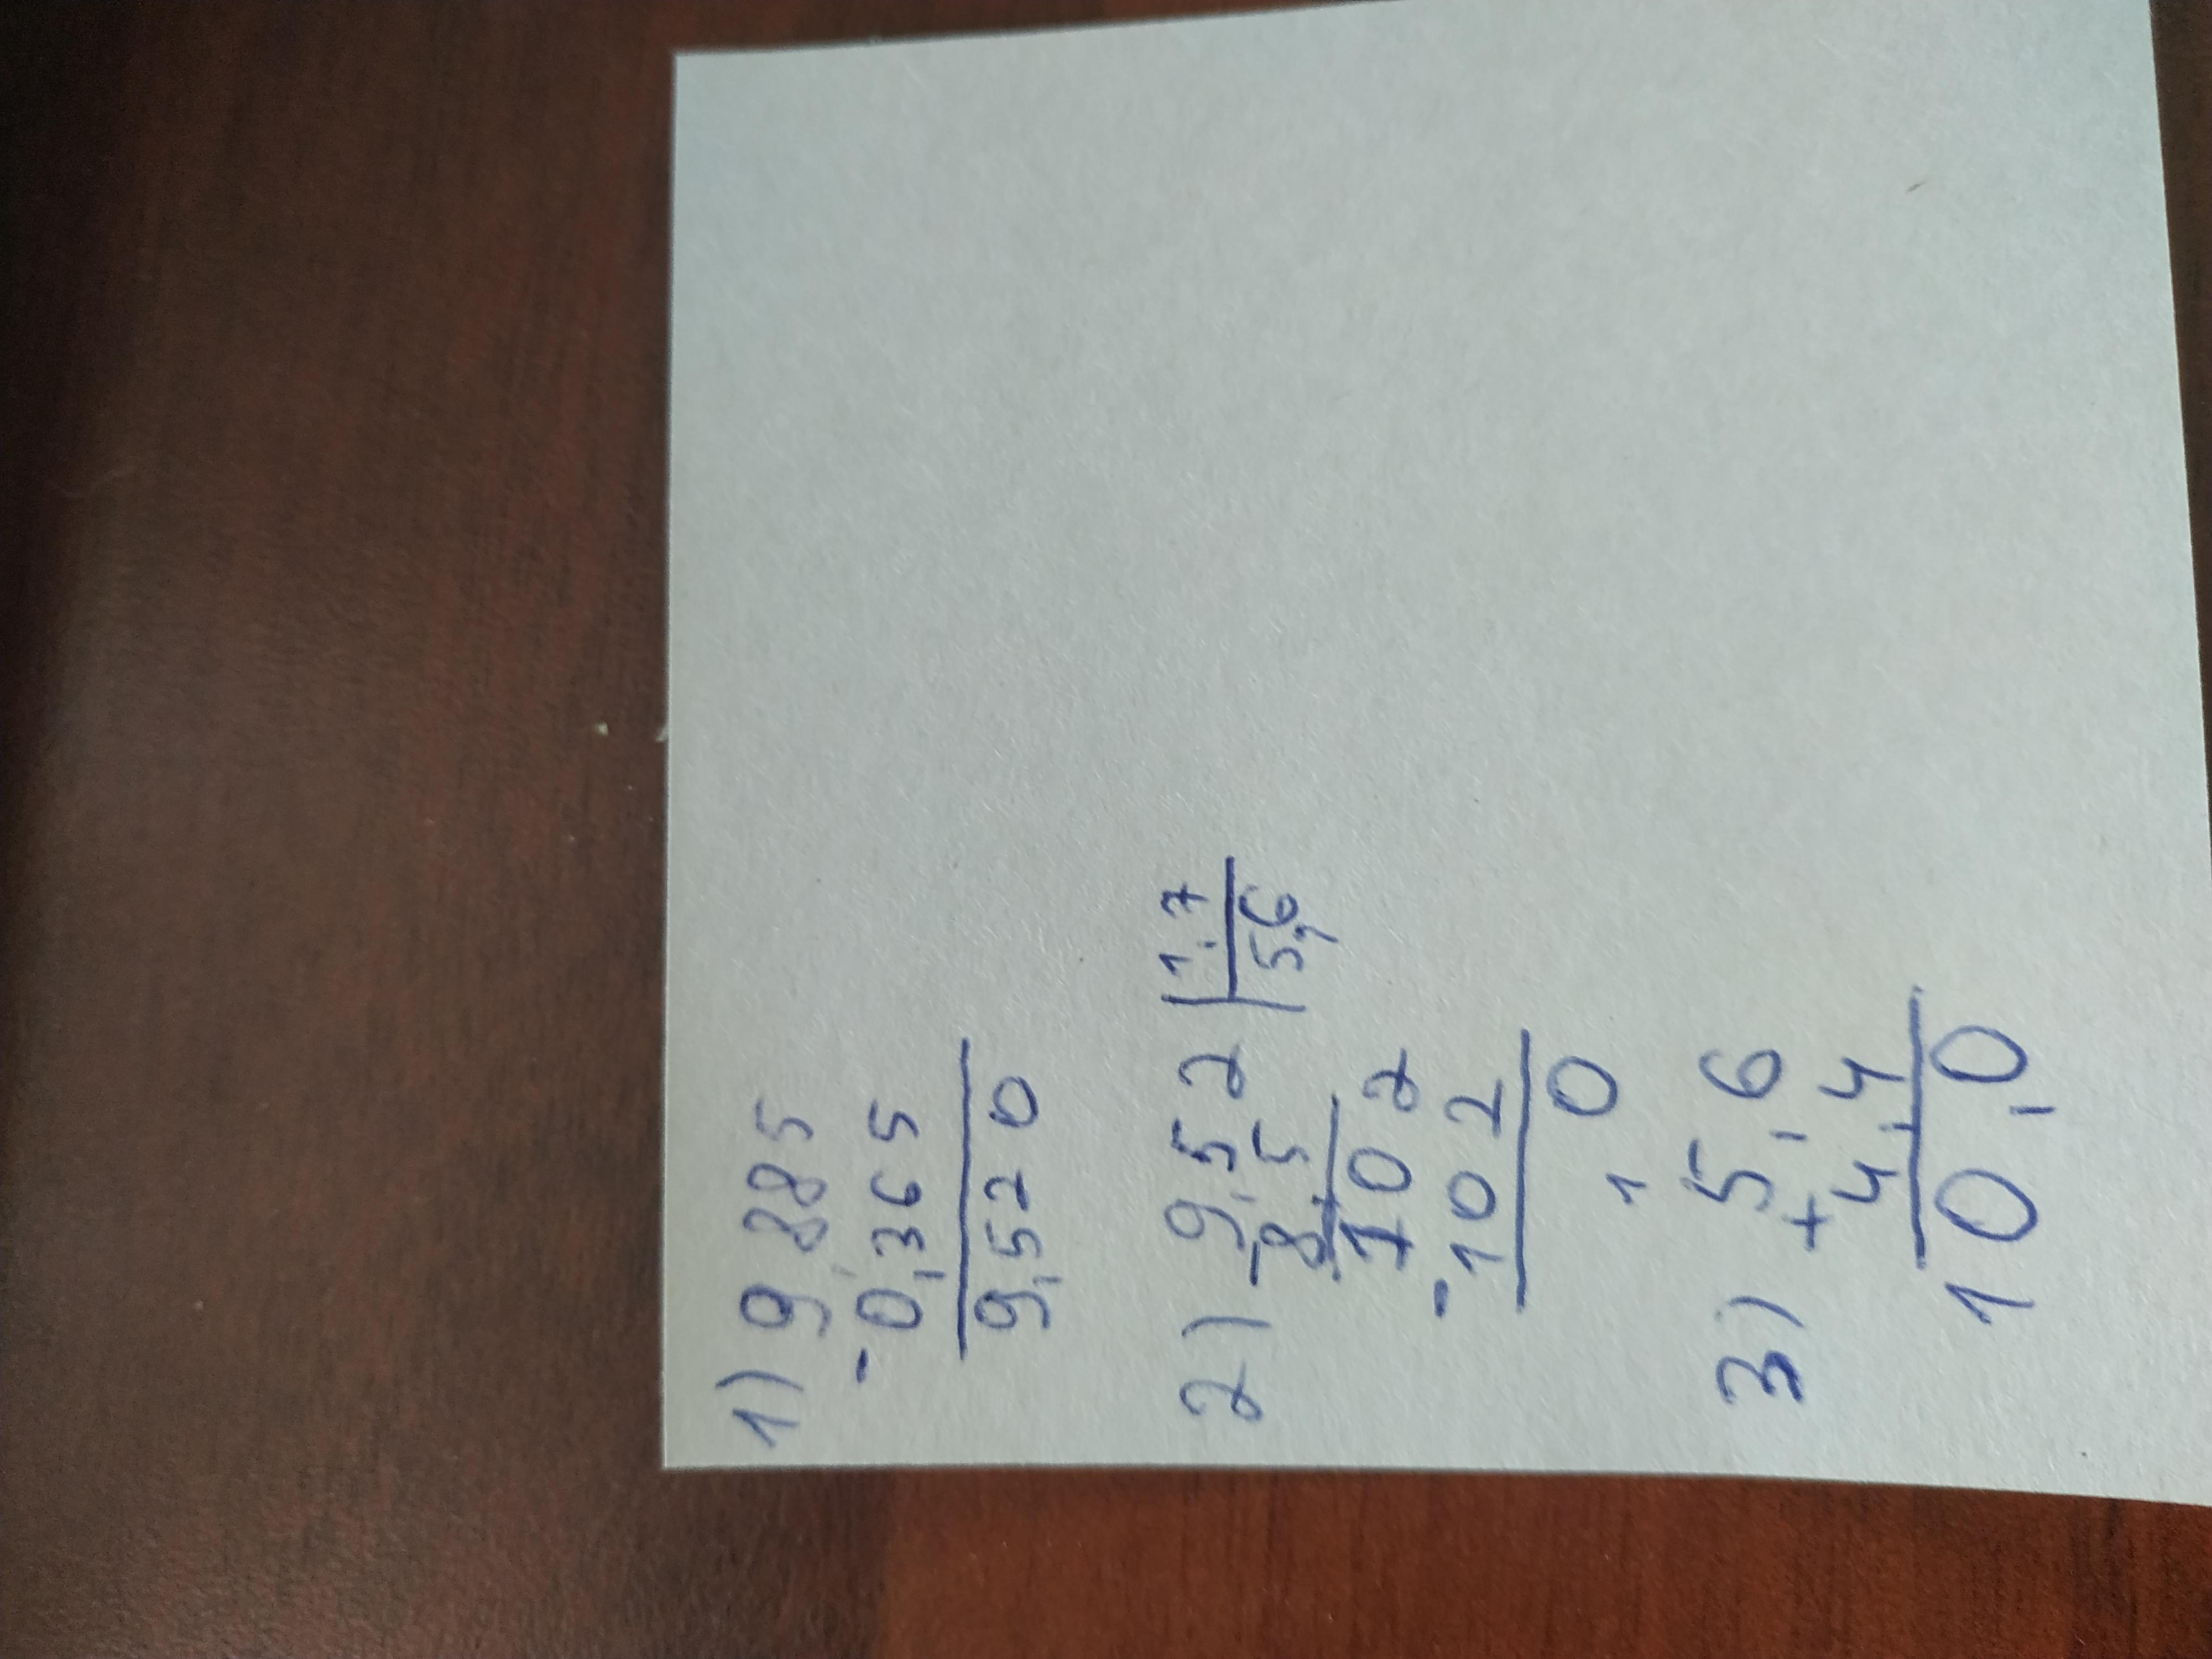 1) 9,885
-0,365
9,520
2) 9,52 | 1,7
-8,5 | 5,6
102
-102
0
1
3) 5,6
+4,4
10,0